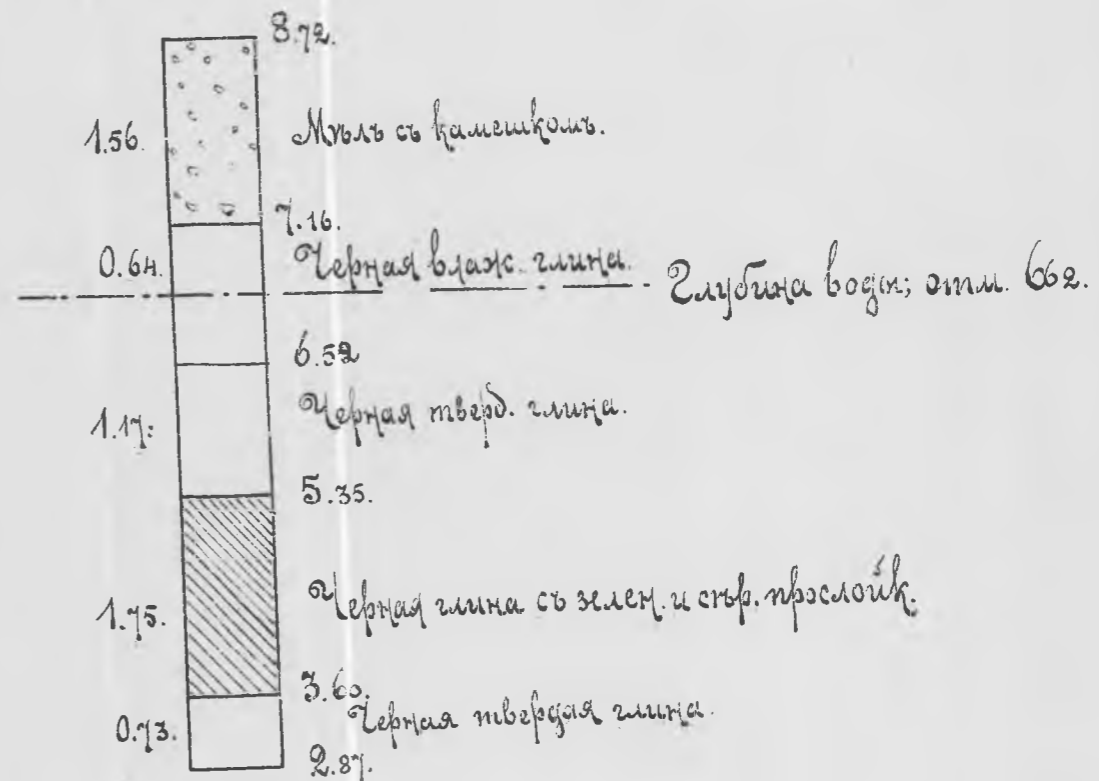 8.72.
1.56. Мѣлъ съ камешкомъ.
7.16.
0.64. Черная влаж. глина.
Глубина воды; отм. 662.
6.52
1.17. Черная тверд. глина.
5.35.
1.75. Черная глина съ зелен. и сѣр. прослойк.
3.60.
0.73. Черная твердая глина.
2.87.